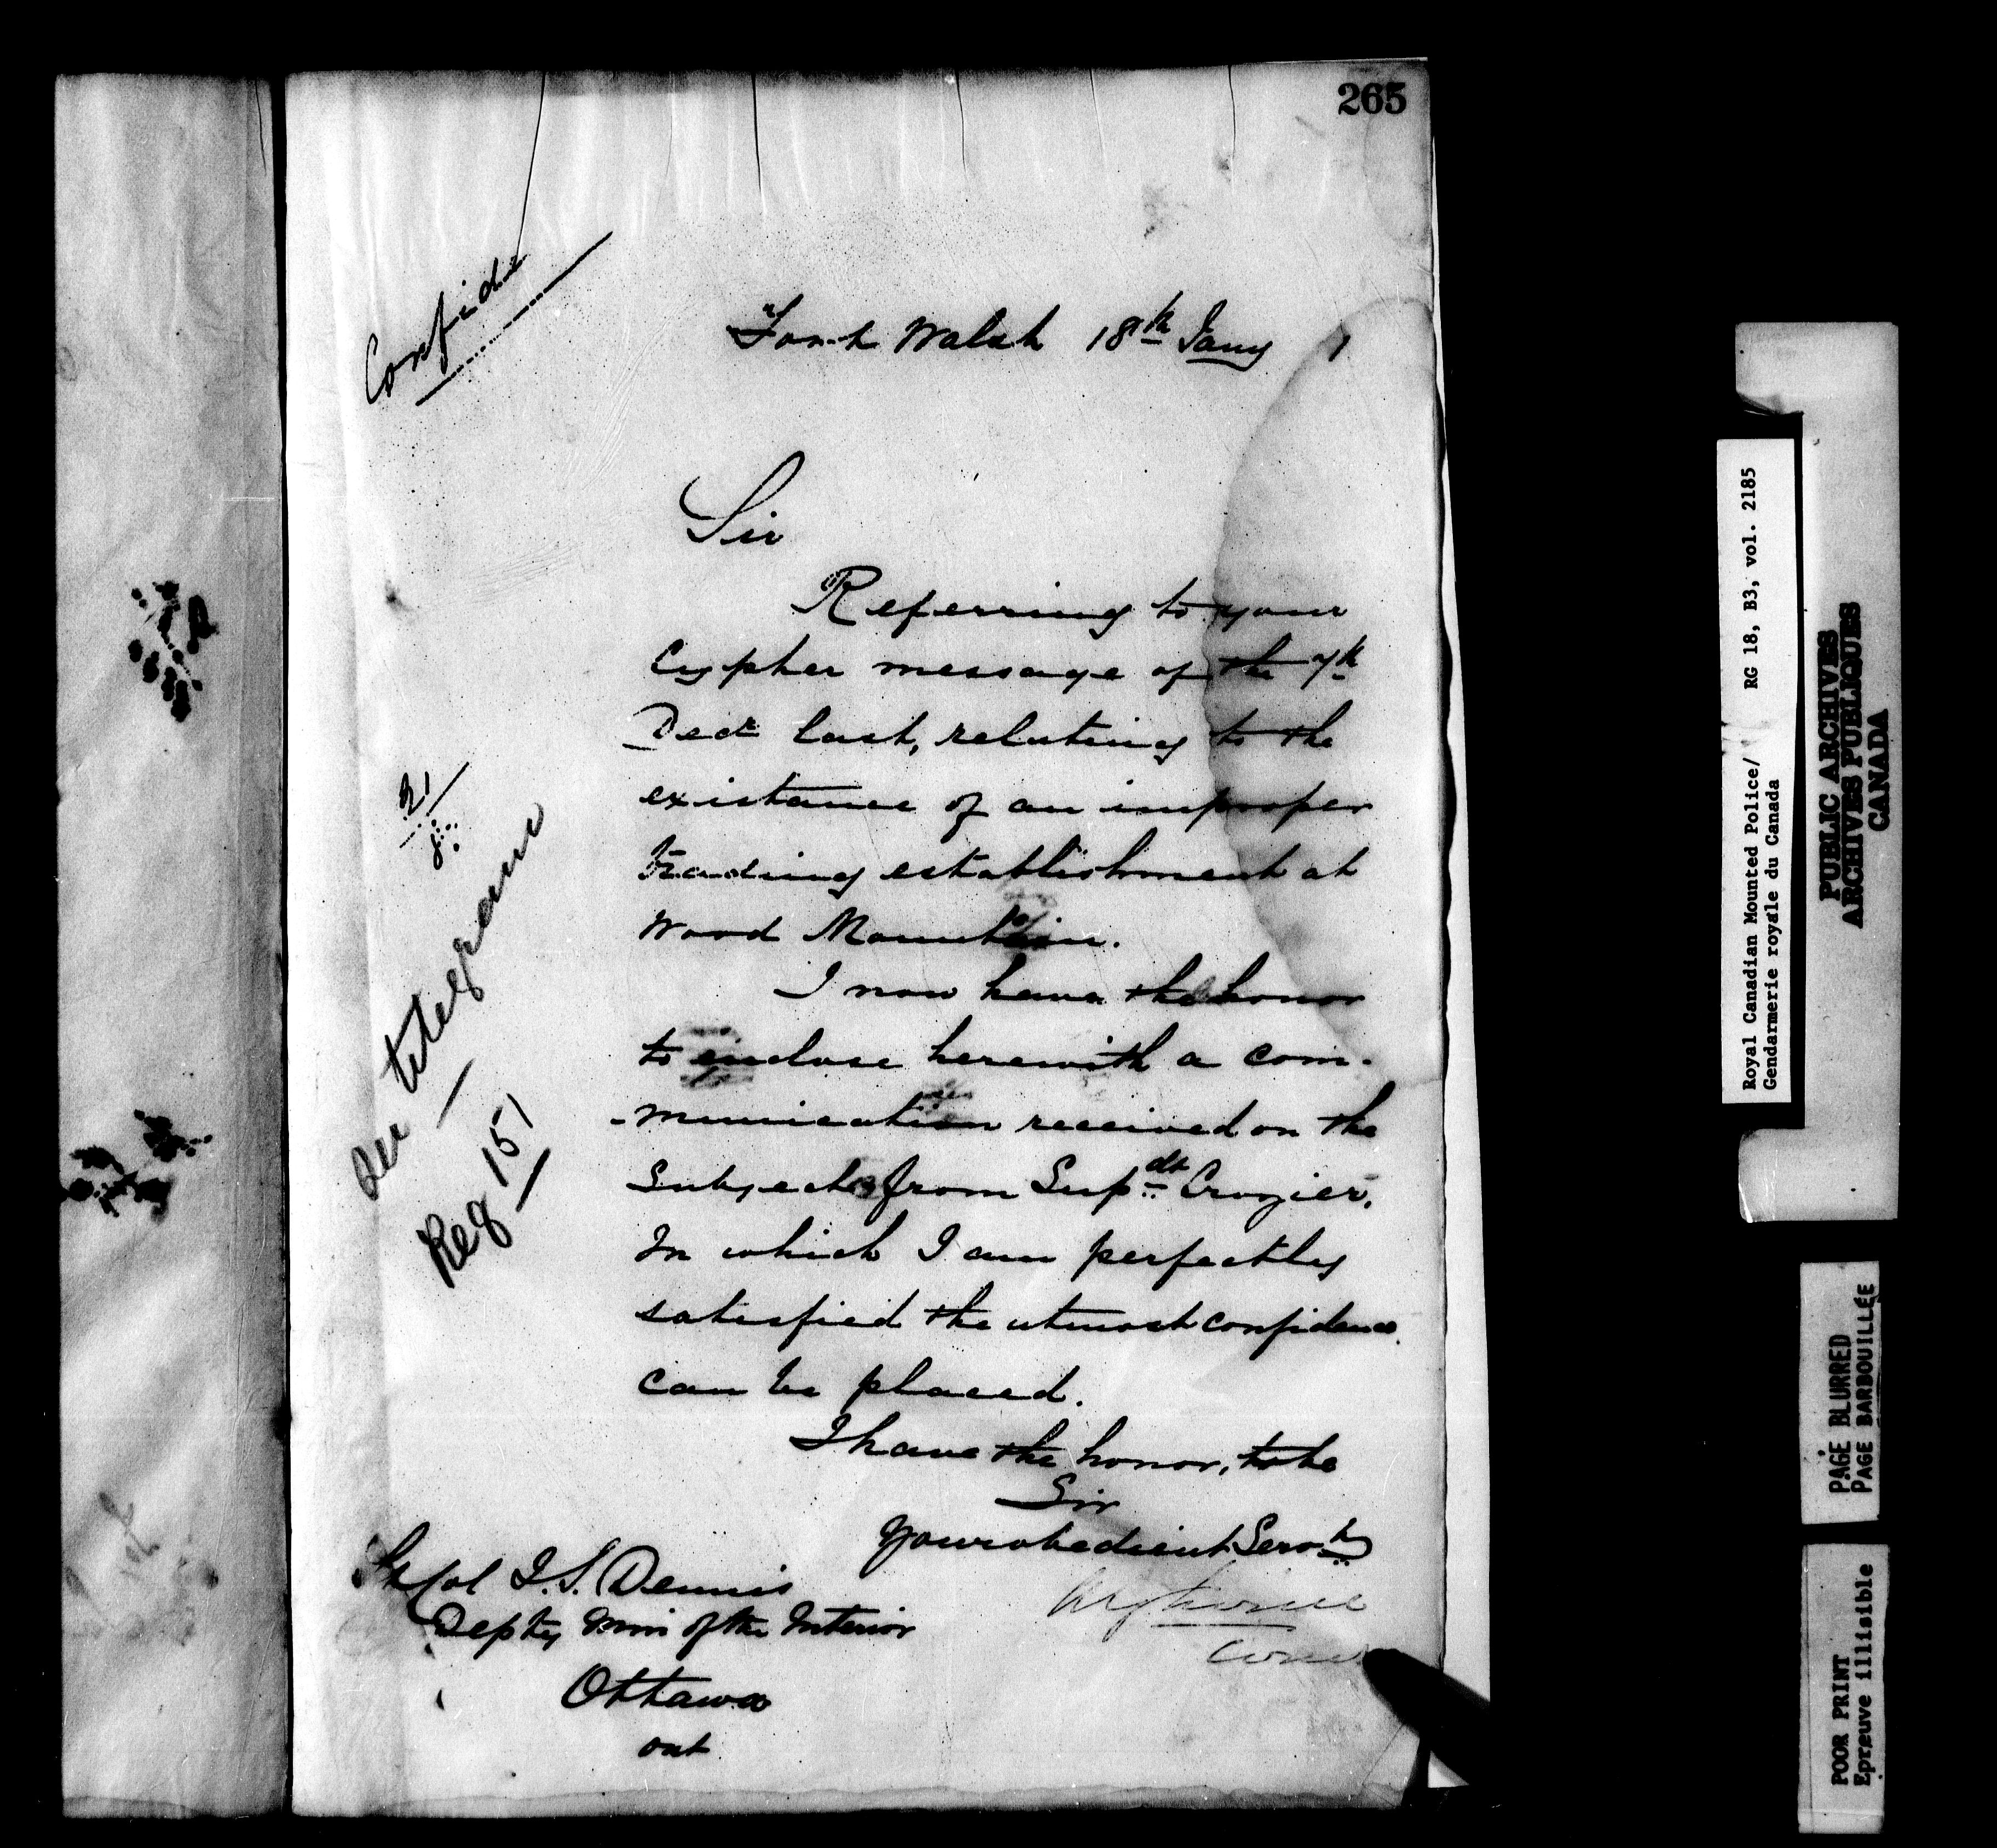 265
Confid
Fort Walsh 18th Jany 1
Sir
Referring to your
Cypher message of the 7th
Decr last, relating to the
existance of an improper
trading establishment at
Wood Mountain.
I now have the honor
to enclose herewith a com-
-munication received on the
Subject from Supdt Crozier,
In which I am perfectly
satisfied the utmost confidence
can be placed.
I have the honor, to be
Sir
Your obedient Servt
Lt Col J. S. Dennis
Depty Min of the Interior
Ottawa
ont
telegram
Reg 151
Royal Canadian Mounted Police/ RG 18, B3, vol. 2185
Gendarmerie royale du Canada
PUBLIC ARCHIVES
ARCHIVES PUBLIQUES
CANADA
PAGE BLURRED
PAGE BARBOUILLÉE
POOR PRINT
Epreuve illisible